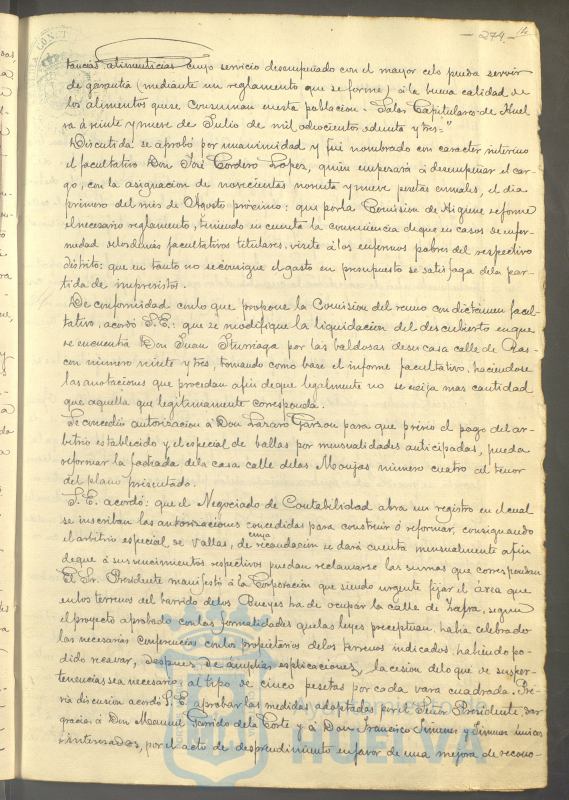 - 274 -
tancias alimenticias cuyo servicio desempeñado con el mayor celo pueda servir
de garantia (mediante un reglamento que se forme) á la buena calidad de
los alimentos que se consuman en esta poblacion. Salas Capitulares de Huel
va á veinte y nueve de Julio de mil ochocientos ochenta y tres="
Discutida se aprobó por unanimidad y fué nombrado con caracter interino
el facultativo Don José Cordero Lopez, quien empesará á desempeñar el car-
go, con la asignacion de novecientas noventa y nueve pesetas anuales, el dia
primero del mes de Agosto próximo: que por la Comision de Higiene se forme
el necesario reglamento, teniendo en cuenta la conveniencia de que en casos de enfer-
medad de los demás facultativos titulares, visite á los enfermos pobres del respectivo
distrito: que en tanto no se consigne el gasto en presupuesto se satisfaga de la par-
tida de imprevistos.
De conformidad con lo que propone la Comision del ramo con dictámen facul-
tativo, acordó S. E.: que se modifique la liquidacion del descubierto en que
se encuentra Don Juan Iturriaga por las baldosas de su casa calle de Ras-
con número veinte y tres, tomando como base el informe facultativo, haciendose
las anotaciones que procedan afin de que legalmente no se exija mas cantidad
que aquella que legitimamente corresponda.
Se concedió autorizacion á Don Lazaro Garzon para que prévio el pago del ar-
bitrio establecido y el especial de vallas por mensualidades anticipadas, pueda
reformar la fachada de la casa calle de las Monjas número cuatro al tenor
del plano presentado.
S. E. acordó: que el Negociado de Contabilidad abra un registro en el cual
se inscriban las autorizaciones concedidas para construir ó reformar, consignando
el arbitrio especial de vallas, de cuya recaudacion se dará cuenta mensualmente afin
de que á sus vencimientos respectivos puedan reclamarse las sumas que correspondan
El Sr. Presidente manifestó á la Corporacion que siendo urgente fijar el área que
en los terrenos del barrido de los Bueyes ha de ocupar la calle de Zafra, segun
el proyecto aprobado con las formalidades que las leyes preceptuan, habia celebrado
las necesarias conferencias con los propietarios de los terrenos indicados, habiendo po-
dido recavar, despues de ámplias esplicaciones, la cesion de lo que de sus per-
tenencias sea necesario, al tipo de cinco pesetas por cada vara cuadrada. Pré-
via discusion acordó S. E. aprobar las medidas adoptadas por el Señor Presidente, dar
gracias á Don Manuel Garrido de la Corte y á Don Francisco Jimenez y Jimenez únicos
interesados, por el acto de desprendimiento en favor de una mejora de recono-
HUELVA